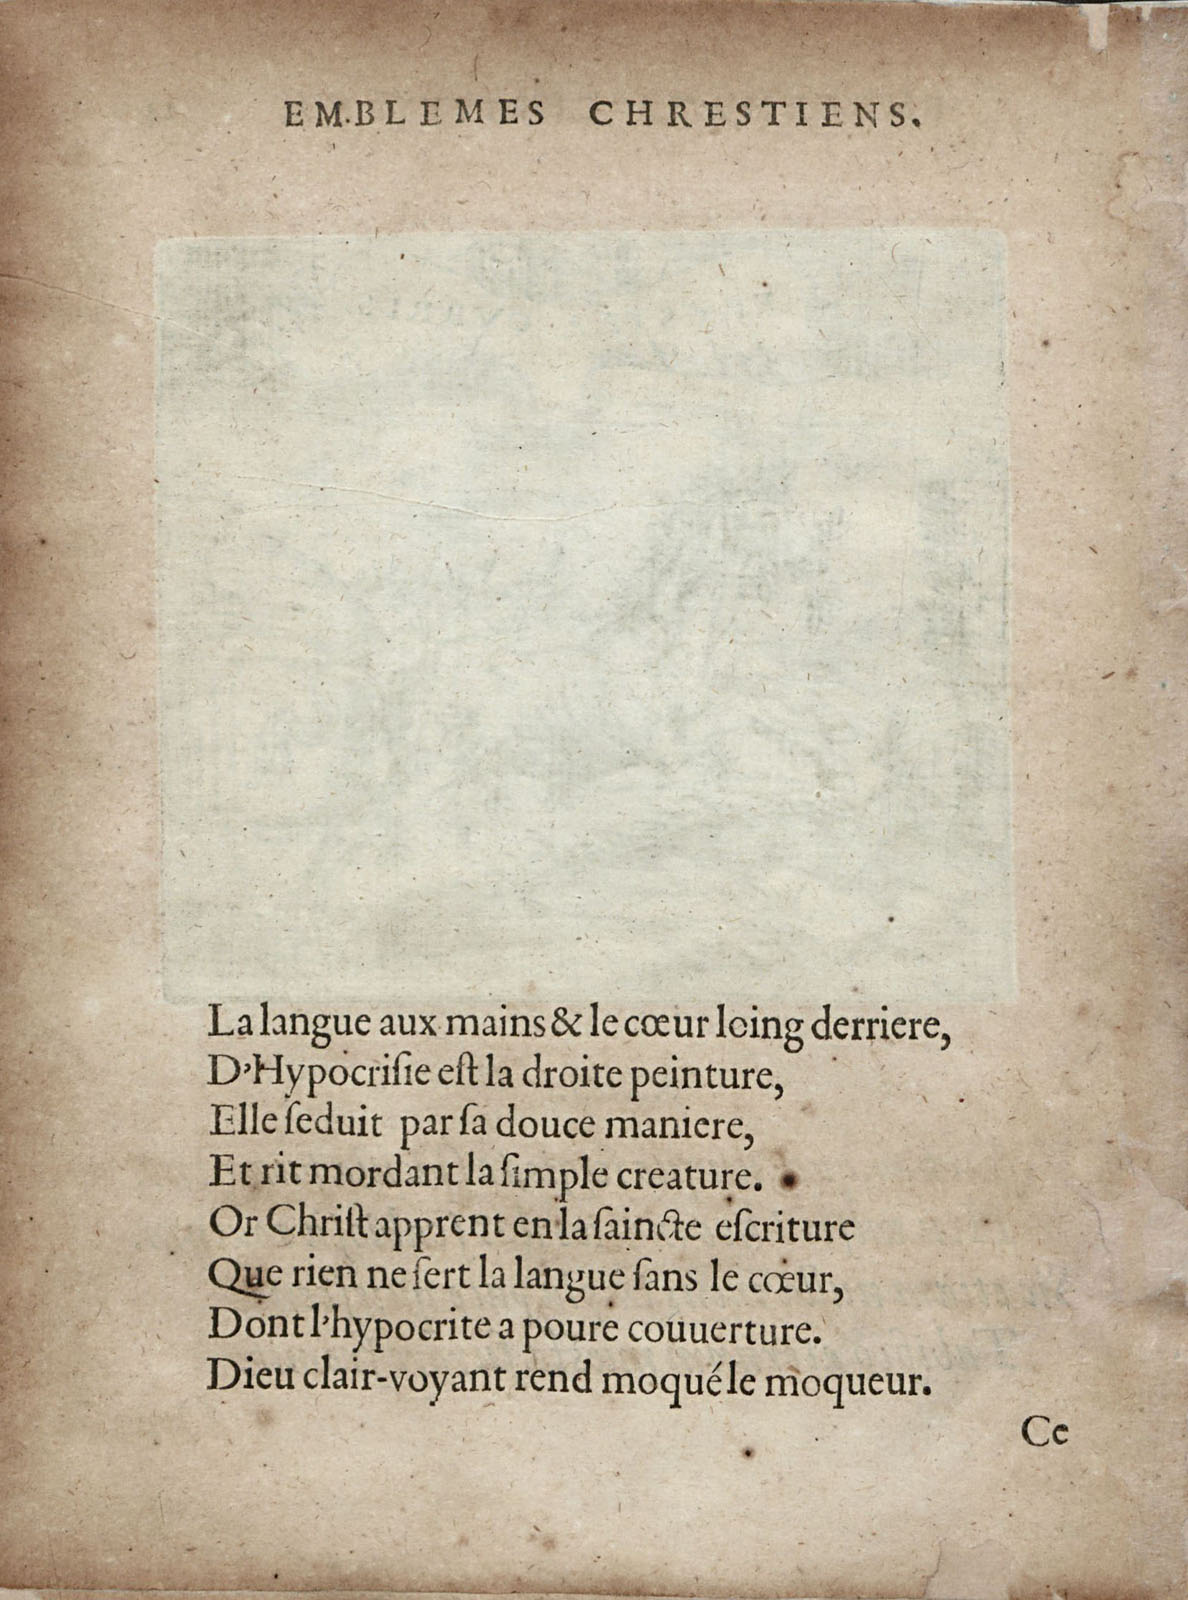 EMBLEMES CHRESTIENS.
La langue aux mains & le cœur loing derriere,
D'Hypocriſie eſt la droite peinture,
Elle ſeduit par ſa douce maniere,
Et rit mordant la ſimple creature.
Or Chriſt apprent en la ſaincte eſcriture
Que rien ne ſert la langue ſans le cœur,
Dont l'hypocrite a poure couuerture.
Dieu clair-voyant rend moqué le moqueur.
Ce